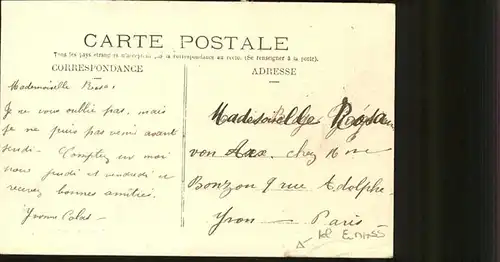 CARTE POSTALE
Tous les pays étrangers n'acceptent pas la correspondance au recto. (Se renseigner à la poste).
CORRESPONDANCE
ADRESSE
Mademoiselle Rosa,
Je ne vous oublie pas, mais
je ne puis pas venir avant
jeudi. Comptez en moi
jeudi et vendredi et
recevez bonnes amitiés.
Yvonne Colas
Mademoiselle Rosa
von chez Mme
Bonzon 9 rue Adolphe
Yvon Paris